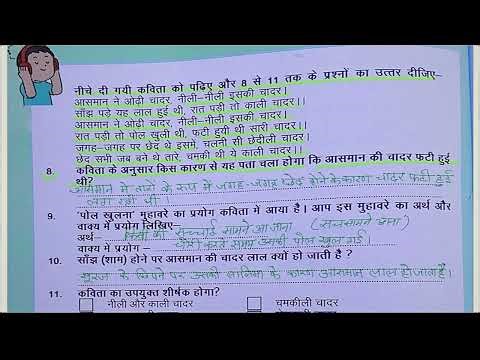 नीचे दी गयी कविता को पढ़िए और 8 से 11 तक के प्रश्नों का उत्तर दीजिए–
आसमान ने ओढ़ी चादर, नीली–नीली इसकी चादर।
साँझ पड़े यह लाल हुई थी, रात पड़ी तो काली चादर।।
आसमान ने ओढ़ी चादर, नीली–नीली इसकी चादर।
रात पड़ी तो पोल खुली थी, फटी हुयी थी सारी चादर।।
जगह–जगह पर छेद थे इसमे, चलनी सी छेदीली चादर।
छेद सभी जब बने थे तारे, चमकी थी ये काली चादर।।
8. कविता के अनुसार किस कारण से यह पता चला होगा कि आसमान की चादर फटी हुई थी?
आसमान में तारों के रूप में जगह-जगह छेद होने के कारण चादर फटी हुई
लगा रही थी।
9. 'पोल खुलना' मुहावरे का प्रयोग कविता में आया है। आप इस मुहावरे का अर्थ और
वाक्य में प्रयोग लिखिए–
अर्थ– किसी की सच्चाई सामने आ जाना (सच सामने आना)
वाक्य में प्रयोग– चोरी करते समय उसकी पोल खुल गई।
10. साँझ (शाम) होने पर आसमान की चादर लाल क्यों हो जाती है ?
सूरज के छिपने पर उसकी लालिमा के कारण आसमान लाल हो जाता है।
11. कविता का उपयुक्त शीर्षक होगा?
नीली और काली चादर चमकीली चादर